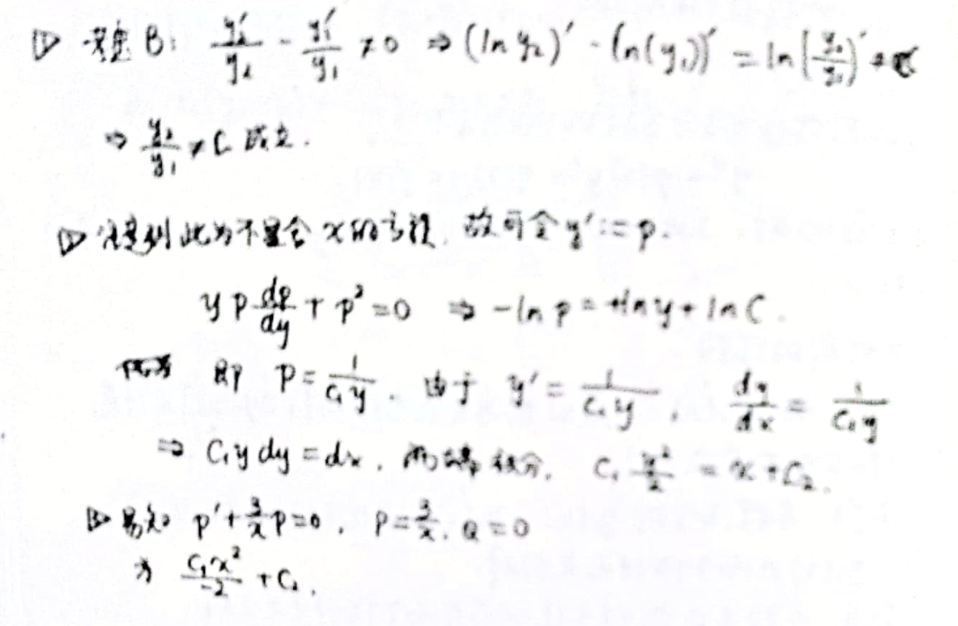 ▷ 考虑 B: y₂'/y₂ - y₁'/y₁ ≠ 0 ⇒ (ln y₂)' - (ln(y₁))' = ln(y₂/y₁)' ≠
⇒ y₂/y₁ ≠ C 成立.
▷ 注意到此为不显含 x 的方程, 故可令 y' := p.
y p dp/dy + p² = 0 ⇒ -ln p = +ln y + ln C.
即 p = 1/(C₁y) 由于 y' = 1/(C₁y), dy/dx = 1/(C₁y)
⇒ C₁y dy = dx, 两端积分, C₁ y²/2 = x + C₂.
▷ 易知 p' + 3/x p = 0, P = 3/x, Q = 0
为 C₁x²/-2 + C₂.